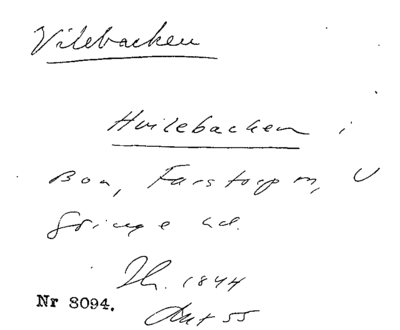 Vilebacken
Hvilebacken i
Boa, Farstorp sn, V
Göinge hd.
1844
Nr 8094. Akt 55